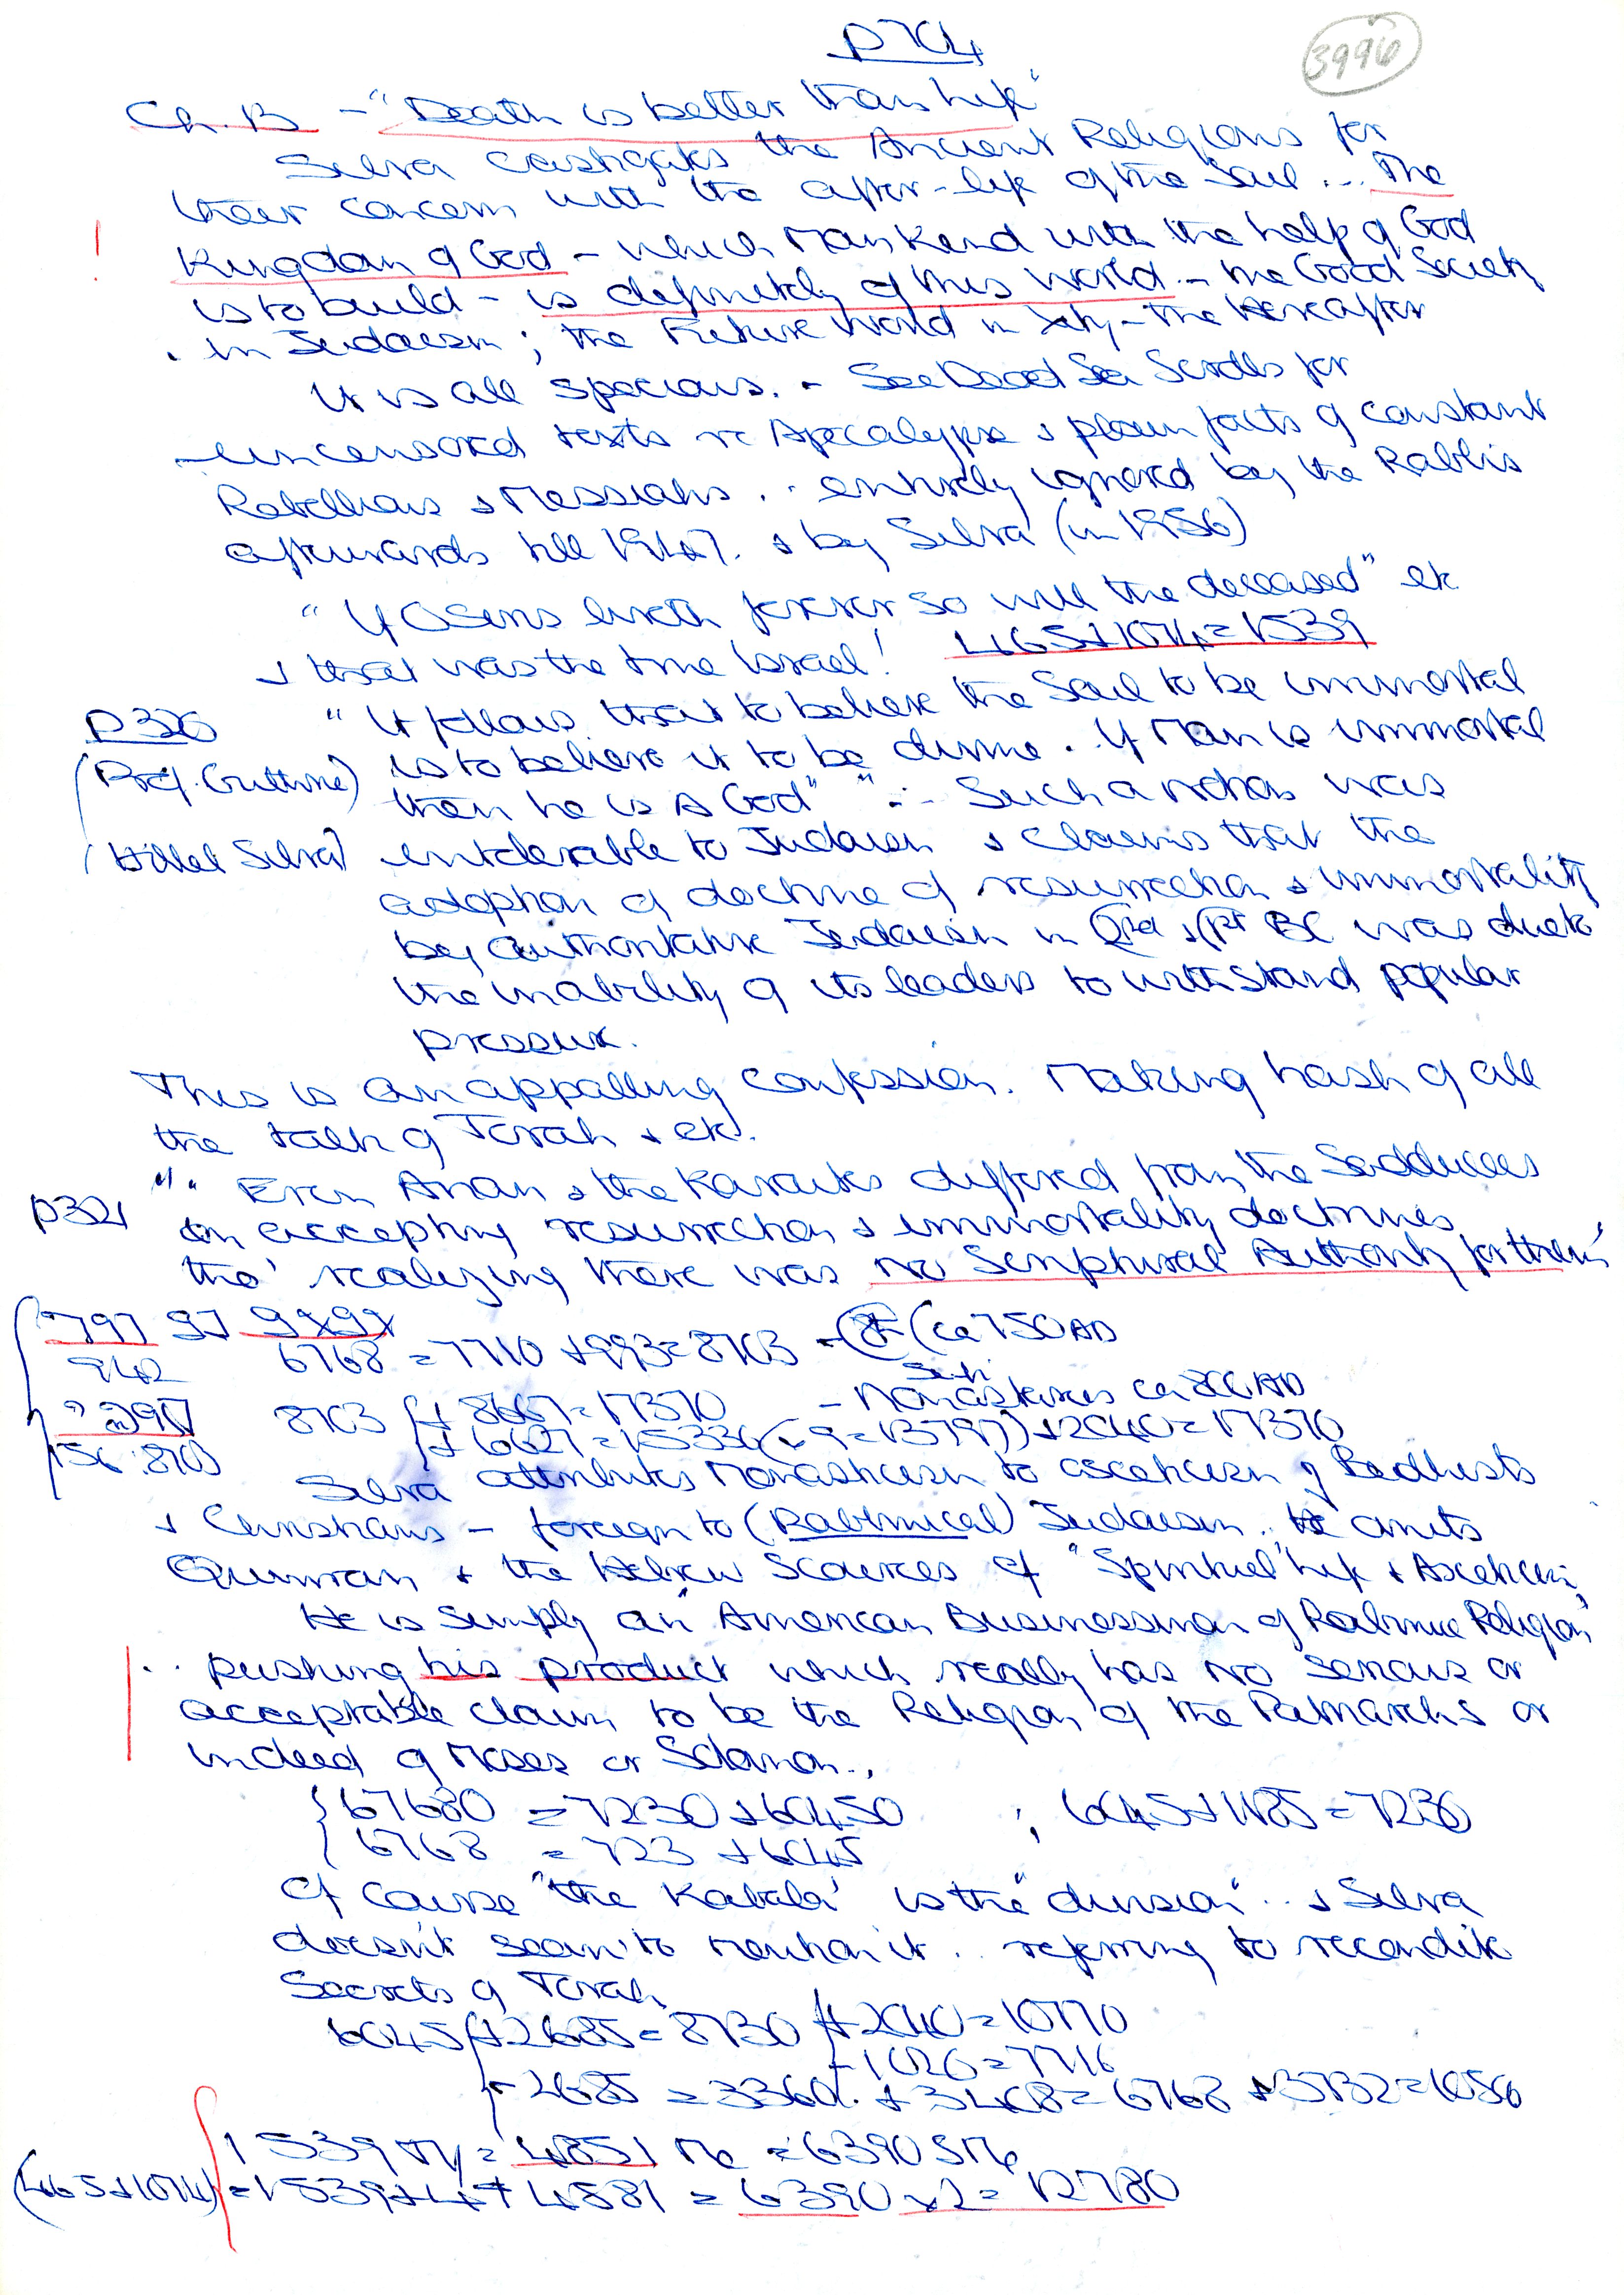 p704
3996
Ch. 13 - "Death is better than life"
Silva castigates the Ancient Religions for
their concern with the after-life of the Soul ... The
! Kingdom of God - which Mankind with the help of God
is to build - is definitely of this World - the Good Society
. in Judaism; the Future World in Xty - the Hereafter
It is all specious. - See Dead Sea Scrolls for
uncensored texts re Apocalypse & plain facts of constant
Rebellions & Messiahs .. entirely ignored by the Rabbis
afterwards till 1947. & by Silva (in 1956)
"If Osiris liveth forever so will the deceased" etc
& that was the true Israel! 465+1074=1539
p320 "It follows that to believe the Soul to be immortal
(Prof. Guthrie) is to believe it to be divine. If Man is immortal
then he is A God" " .. Such a notion was
(Hillel Silva) intolerable to Judaism & claims that the
adoption of doctrine of resurrection & immortality
by authoritative Judaism in 2nd & 1st BC was due to
the inability of its leaders to withstand popular
pressure.
This is an appalling confession. Making hash of all
the talk of Torah & etc.
p321 "" Even Anan & the Karaites differed from the Sadducees
in accepting resurrection & immortality doctrines
tho' realizing there was no Scriptural Authority for them"
797 97 9x9x
942 6768 = 7710 +993=8703 - (ca 750 AD
8703 + 8667=17370 - Monasteries ca 800 AD
+ 6627=15330 +2040=17370
156:8703
Silva attributes Monasticism to asceticism of Budhists
& Christians - foreign to (Rabbinical) Judaism. He omits
Qumran & the Hebrew Sources of "Spiritual" life & Asceticism,
He is simply an American Businessman of Rabbinic Religion
.. pushing his product which really has no serious or
acceptable claim to be the Religion of the Patriarchs or
indeed of Moses or Solomon.,
67680 = 7230+60450 ; 6045+1185=7230
6768 = 723 +6045
Of course "the Kabala" is the "division" .. & Silva
doesn't seem to mention it .. referring to recondite
Secrets of Torah
6045 +2685=8730 +2040=10770
-2685 =3360. +3408=6768 +3732=10500
1539 = 4851 = 6390
(465+1074) =1539+ 4881 = 6390 x2=12780